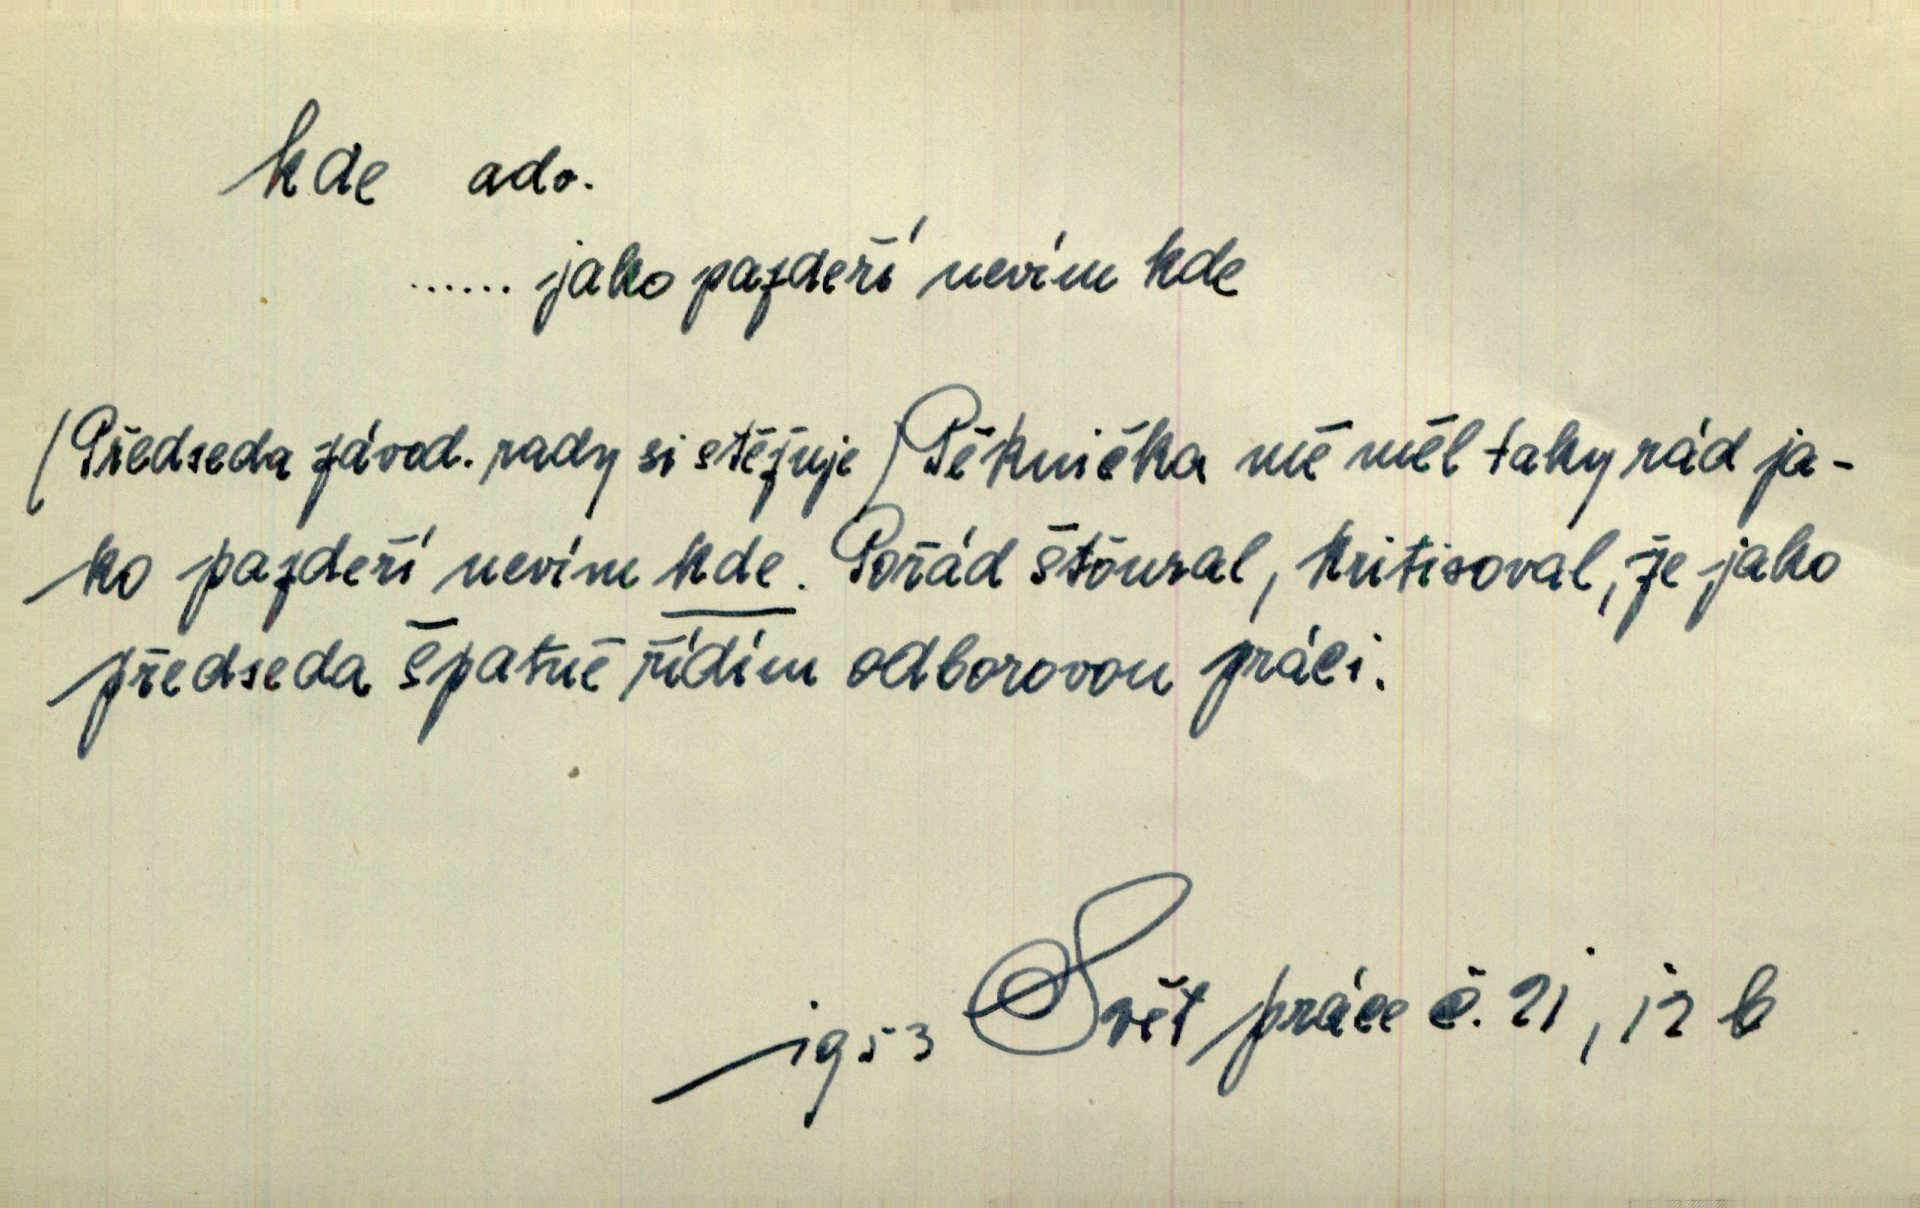 kde adv.
...... jako pazdeří nevím kde
(Předseda závod. rady si stěžuje) Pěknička mě měl taky rád ja-
ko pazdeří nevím kde. Pořád štoural, kritisoval, že jako
předseda špatně řídím odborovou práci.
1953 Svět práce č. 21, 12 b